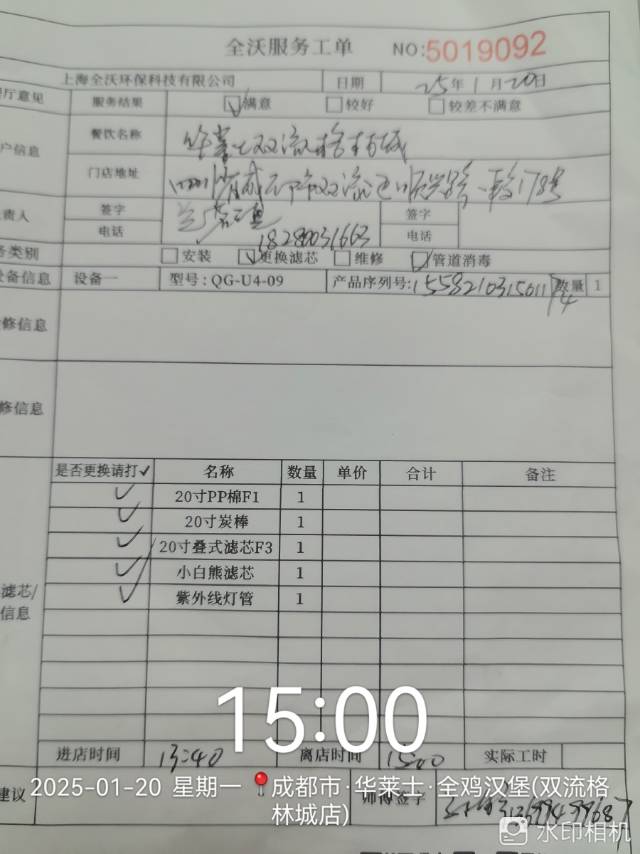 全沃服务工单 NO:5019092
上海全沃环保科技有限公司 日期 25年1月20日
厅意见 服务结果 满意 较好 较差不满意
户信息 餐饮名称 华莱士双流格林城
门店地址 四川省成都双流区
责人 签字 签字
电话 18280031663 电话
务类别 安装 更换滤芯 维修 管道消毒
设备信息 设备一 型号:QG-U4-09 产品序列号: 数量 1
修信息
修信息
是否更换请打✓ 名称 数量 单价 合计 备注
✓ 20寸PP棉F1 1
✓ 20寸炭棒 1
✓ 20寸叠式滤芯F3 1
✓ 小白熊滤芯 1
✓ 紫外线灯管 1
滤芯/
信息
15:00
进店时间 13:40 离店时间 15:00 实际工时
建议 师傅签字
2025-01-20 星期一 成都市·华莱士·全鸡汉堡(双流格
林城店)
水印相机